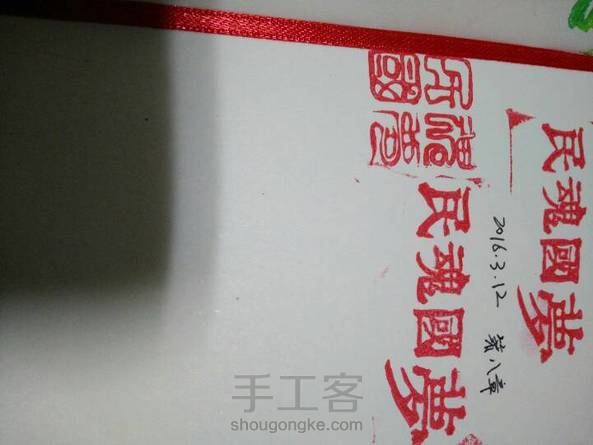 民魂國夢
2016.3.12 第八章
民魂國夢
民魂國夢
手工客
shougongke.com